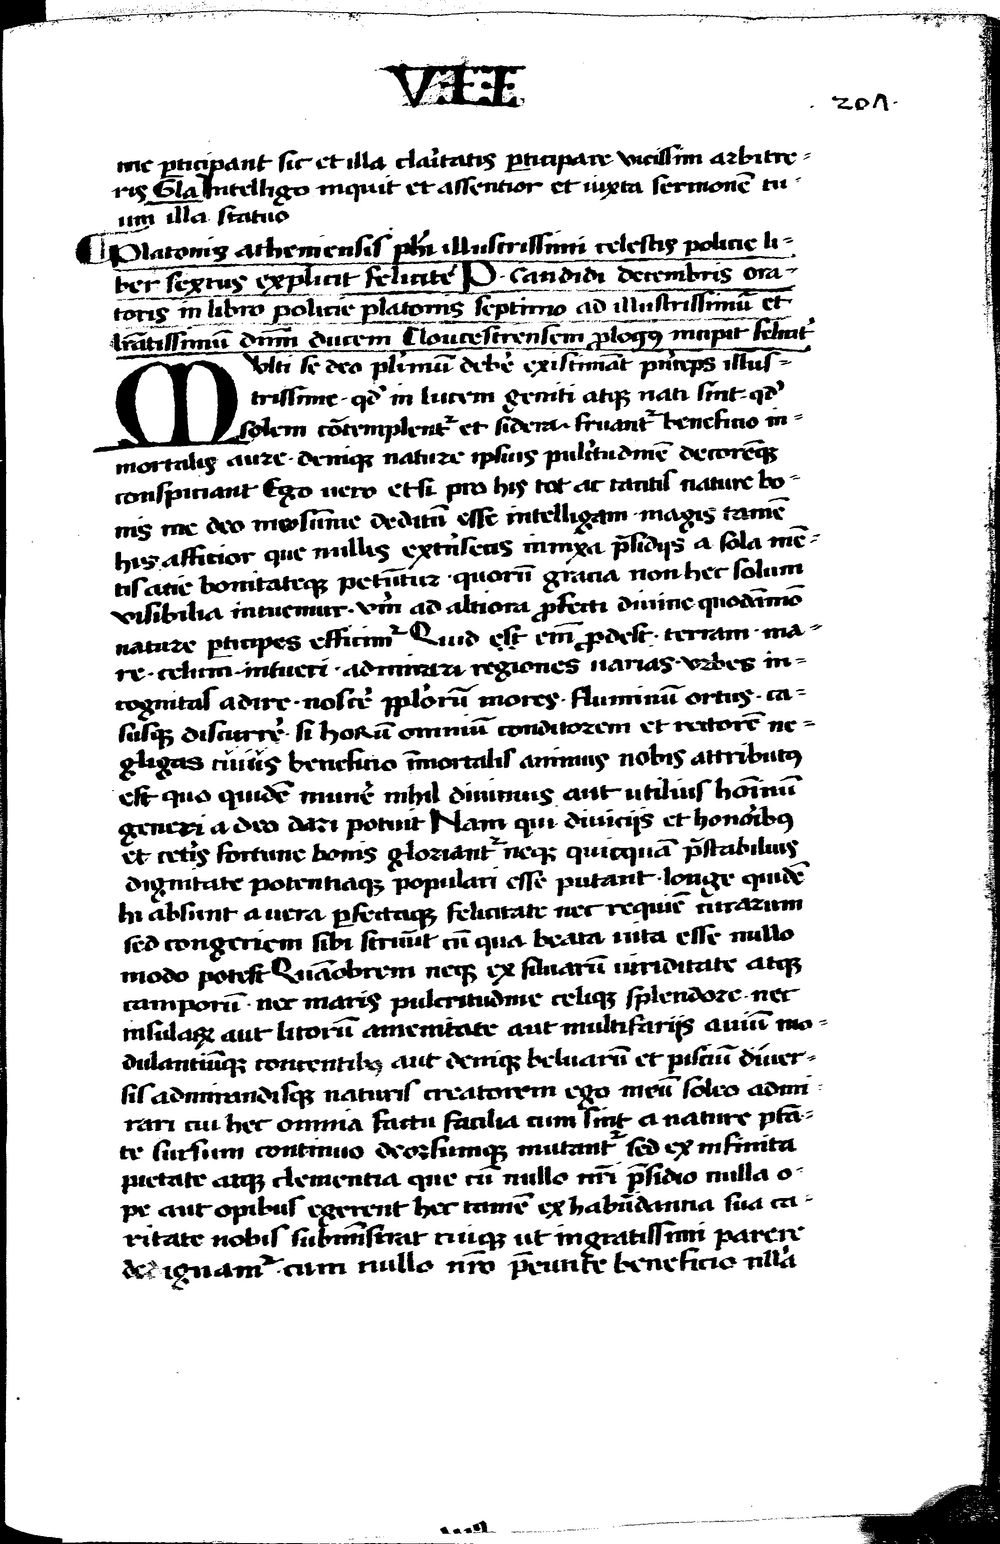 VII
201
me pticipant sic et illa claritatis pticipare vicissim arbitre=
ris Gla Intelligo inquit et assentior et iuxta sermonē tu-
um illa statuo
Platonis atheniensis phi illustrissimi celestis policie li=
ber sextus explicit felicitē P. Candidi decembris ora=
toris in libro policie platonis septimo ad illustrissimū et
lrātissimū dnm ducem Cloucestrensem ꝓlogꝰ incipit felicit̓
Multi se deo plīmū debē existimāt pnceps illus=
trissime · qd̓ in lucem geniti atqꝫ nati sint · qd̓
solem cōtemplent᷑ et sidera fruant᷑ beneficio in=
mortalis aure · deniqꝫ nature ipsius pulcritudinē decorēqꝫ
conspiciant Ego vero etsi pro his tot ac tantis nature bo=
nis me deo mͣxīme deditū esse intelligam · magis tamē
his afficior que nullis extrīsecis innixa p̄sidijs a sola mē=
tis acie bonitateqꝫ petūtur · quorū gracia non hec solum
visibilia intuemur · vm̄ ad altiora ꝓfecti divine quodāmō
nature pticipes efficim᷑ Quid est em̄ ꝓdest · terram · ma=
re · celum · intueri · admirari regiones varias · urbes in=
cognitas adire · noscē pplorū mores · fluminū ortus · ca=
susqꝫ discurrē · si horū omniū conditorem et rectorē ne=
gligas cuius beneficio īmortalis animus nobis attributꝰ
est quo quidē munē nihil divinius aut utilius hoīnū
generi a deo dari potuit Nam qui diviciis et honoribꝰ
et cetīs fortune bonis gloriant᷑ neqꝫ quicquā p̄stabilius
dignitate potentiaqꝫ populari esse putant · longe quidē
hi absunt a vera pfectaqꝫ felicitate nec requiē curarum
sed congeriem sibi struūt cū qua beata vita esse nullo
modo potest Quāobrem neqꝫ ex silvarū viriditate atqꝫ
camporū · nec maris pulcritudine celiqꝫ splendore · nec
insulaꝝ aut litorū amenitate aut multifarijs aviū mo=
dulantiūqꝫ concentibꝫ aut deniqꝫ beluarū et pisciū diver=
sis admirandisqꝫ naturis creatorem ego meū soleo admi=
rari cui hec omnia factu facilia cum sint a nature ptā=
te sursum continuo deorsumqꝫ mutant᷑ sed ex infinita
pietate atqꝫ clementia que cū nullo nrī p̄sidio nulla o-
pe aut opibus egerent hec tamē ex habūdantia sua ca-
ritate nobis subminīstrat cuiqꝫ ut ingratissimi parere
dedignam᷑ · cum nullo nr̄o p̄eunte beneficio nllā